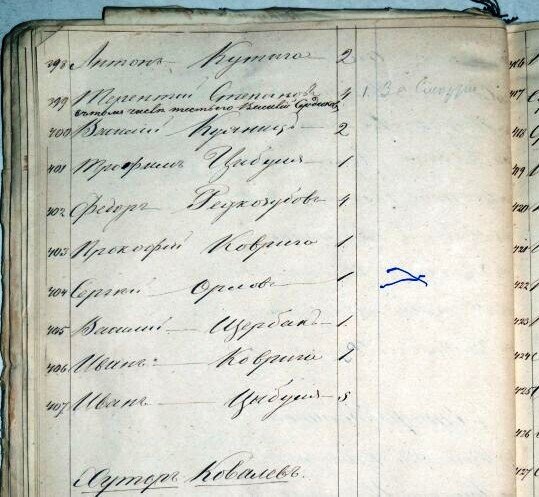 398 Антонъ Кутага 2
399 Терентий Степановъ 4 1.
въ томъ числѣ тестъ его Василий
400 Василий 2
401 Трофимъ Цыбуля 1
402 Федоръ Редкозубовъ 4
403 Прокофий Коврига 1
404 Сергий Орловъ 1
405 Василий Щербакъ 1.
406 Иванъ Коврига 1
407 Иванъ Цыбуля 5
Хуторъ Ковалевъ.
416
417
418
419
420
421
422
423
424
425
426
427